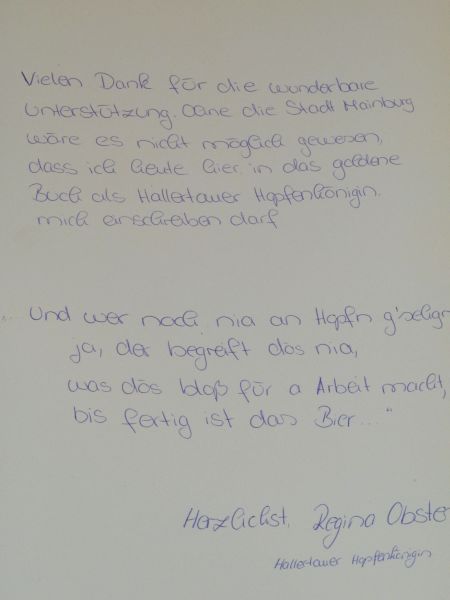 Vielen Dank für die wunderbare
Unterstützung. Ohne die Stadt Mainburg
wäre es nicht möglich gewesen,
dass ich heute hier in das goldene
Buch als Hallertauer Hopfenkönigin
mich einschreiben darf
Und wer noch nia an Hopfn g'seign
ja, der begreift dös nia,
was dös bloß für a Arbeit macht,
bis fertig ist das Bier..."
Herzlichst, Regina Obste
Hallertauer Hopfenkönigin